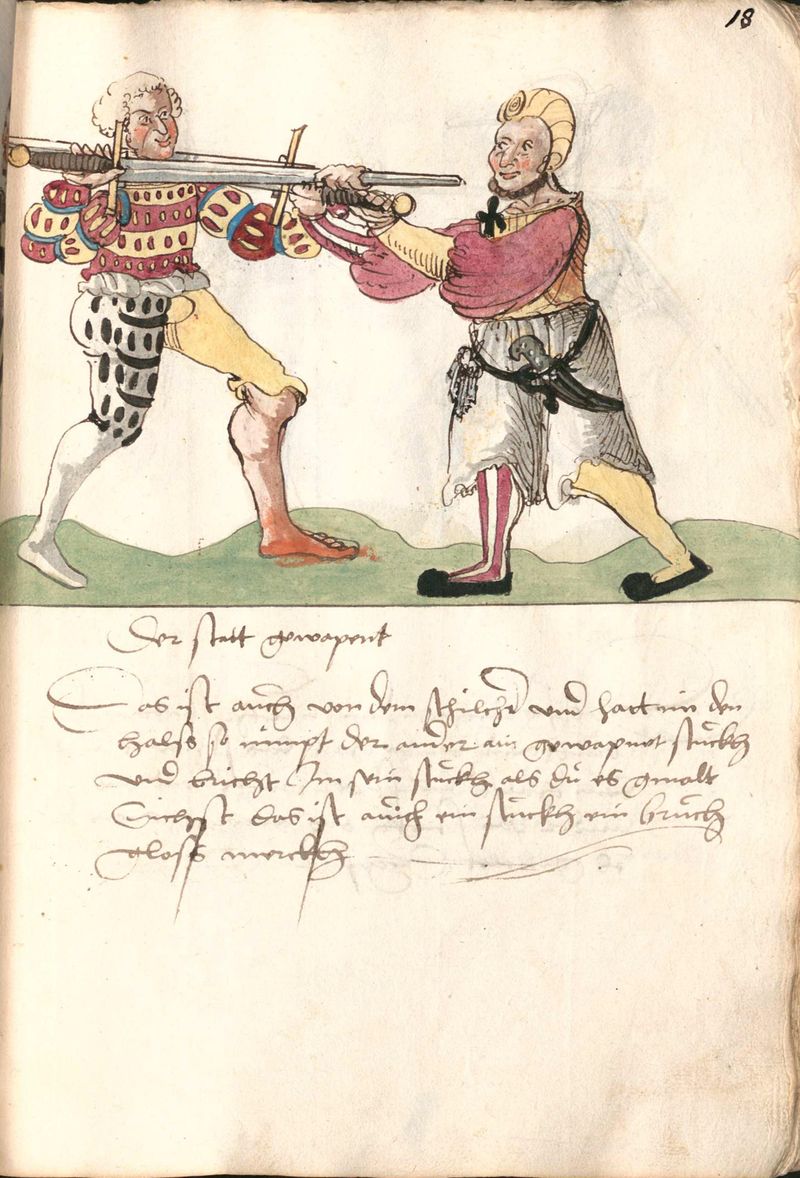 18
Der statt gewapent
Das ist auch von dem schilcher und hatt im den
halss so nimpt der ander ain gewapnet stuckh
und bricht Im sein stuckh als du es gmalt
Sichst das ist auch ein stuckh ein bruch
gloss merckh